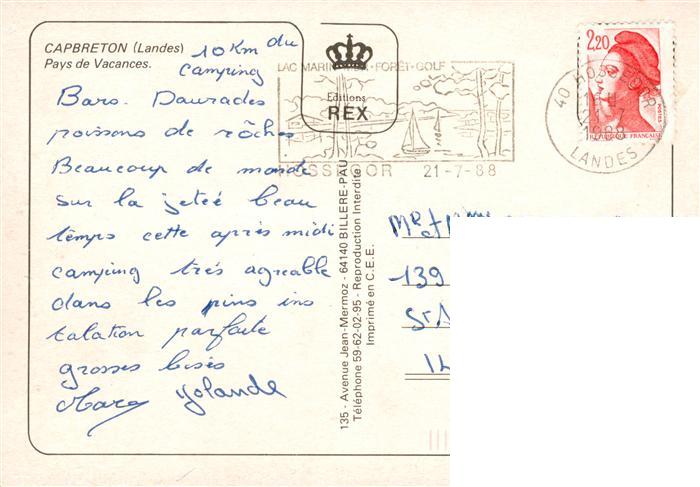 CAPBRETON (Landes)
Pays de Vacances.
10 Km du
camping
Bars. Daurades
poissons de rôches
Beaucoup de monde
sur la jeteé beau
temps cette après midi
camping très agreable
dans les pins ins
talation parfaite
grosses bisés
Marc Yolande
Editions
REX
LAC MARIN FORÊT-GOLF
HOSSEGOR 21-7-88
135 - Avenue Jean-Mermoz - 64140 BILLERE-PAU
Téléphone 59-62-02-95 - Reproduction Interdite
Imprimé en C.E.E.
2,20
REPUBLIQUE FRANÇAISE
POSTES
40 HOSSEGOR
1988
LANDES
Mr et Mme
139
St